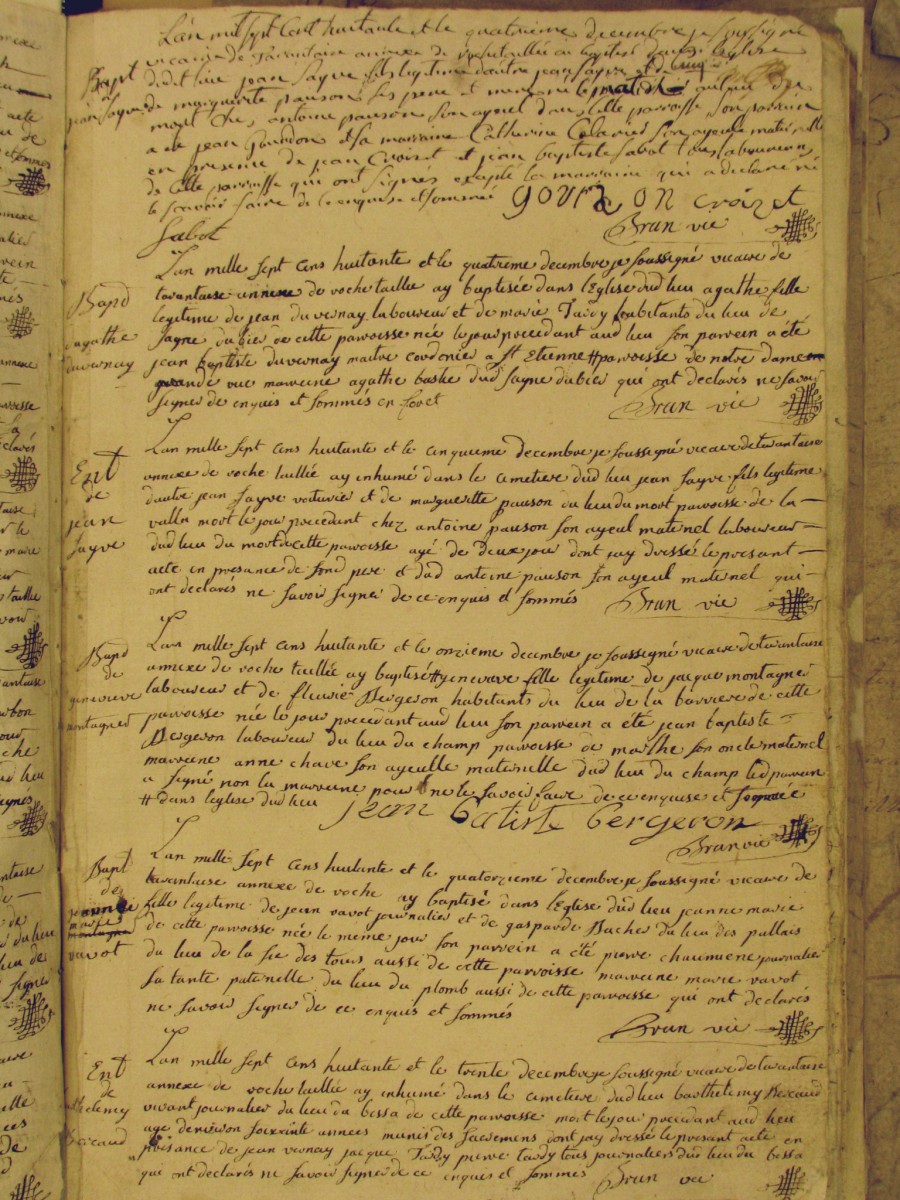 L'an mil sept cent huitante et le quatrieme decembre je soussigné
vicaire de Tarantaise annexe de rochetaillée ai baptisé dans l'eglise
Bapt
dudit lieu jean fayve fils legitime d'autre jean fayve et de
jean fayve
de marguerite pauson ses pere et mere né le matin
antoine pauson son ayeul de cette parroisse son parrain
a été jean Gourdon et sa marraine Catherine son ayeule maternelle
en presence de jean Croizet et jean baptiste Sabot tous laboureurs
de cette parroisse qui ont signés exepté la marraine qui a declaré ne
le scavoir faire de ce enquise et sommée gourdon croizet
Sabot
Brun vic
L'an mille sept cens huitante et le quatrieme decembre je soussigné vicaire de
tarantaise annexe de roche taillée ay baptisée dans l'Eglise dud lieu agathe fille
Bapt
legitime de jean duvernay laboureur et de marie Tardy habitants du lieu de
d'agathe
fagne du bief de cette parroisse née le jour precedant aud lieu son parrein a été
duvernay
jean baptiste duvernay maitre cordonier a St Etienne # parroisse de notre dame
grande rue marreine agathe dud fagne du bief qui ont declarés ne savoir
signer de enquis et sommés en foret
Brun vic
L'an mille sept cens huitante et le cinquieme decembre je soussigné vicaire de tarantaise
Ent
annexe de roche taillée ay inhumé dans le cimetiere dud lieu jean fayve fils legitime
de
d'autre jean fayve voiturier et de marguerite pauson du lieu du mort parroisse de la
jean
valla mort le jour precedant chez antoine pauson son ayeul maternel laboureur
fayve
dud lieu du mort de cette parroisse agé de deux jour dont jay dressé le present
acte en presance de sond pere et dud antoine pauson son ayeul maternel qui
ont declarés ne savoir signer de ce enquis et sommés Brun vic
L'an mille sept cens huitante et le onzieme decembre je soussigné vicaire de tarantaise
Bapt
annexe de roche taillée ay baptisé # genevieve fille legitime de jacque montagner
de
genevieve
laboureur et de fleurie Bergeron habitants du lieu de la barriere de cette
montagner
parroisse née le jour precedant aud lieu son parrein a été jean baptiste
Bergeron laboureur du lieu du champ parroisse de marlhe son oncle maternel
marreine anne chave son ayeulle maternelle dud lieu du champ led parrain
a signé non la marreine pour ne le savoir faire de ce enquise et sommée
# dans l'eglise dud lieu jean Batiste bergeron
Brun vic
L'an mille sept cens huitante et le quatorzieme decembre je soussigné vicaire de
Bapt
tarantaise annexe de roche ay baptisé dans l'Eglise dud lieu jeanne marie
de
jeanne
fille legitime de jean ravot journalier et de gasparde Bacher du lieu des pallais
marie
de cette parroisse née le meme jour son parrein a été pierre chaumiene journalier
ravot
du lieu de la fie des tours aussi de cette parroisse marreine marie ravot
sa tante paternelle du lieu du plomb aussi de cette parroisse qui ont declarés
ne savoir signer de ce enquis et sommés
Brun vic
L'an mille sept cens huitante et le trente decembre je soussigné vicaire de tarantaise
Ent
annexe de roche taillée ay inhumé dans le cimetiere dud lieu barthelemy
de
vivant journalier du lieu du bessa de cette parroisse mort le jour precedant aud lieu
agé d'environ soixante années munis des sacremens dont jay dressé le present acte en
presance de jean vernay jacque Tardy pierre tardy tous journaliers dud lieu du bessa
qui ont declarés ne savoir signer de ce enquis et sommés Brun vic